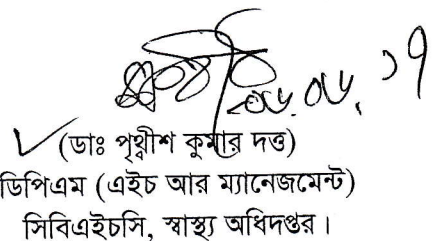 (ডাঃ পৃথ্বীশ কুমার দত্ত)
ডিপিএম (এইচ আর ম্যানেজমেন্ট)
সিবিএইচসি, স্বাস্থ্য অধিদপ্তর।